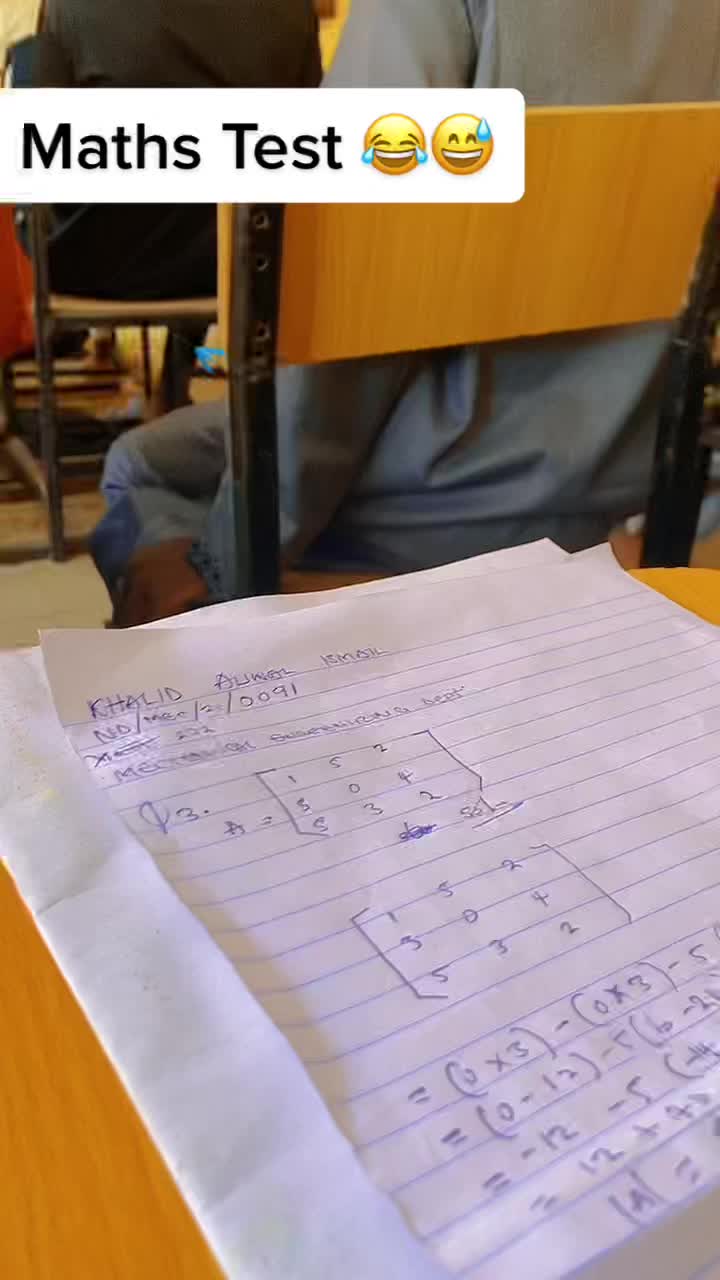 Maths Test 😂😅
KHALID AUWAL ISMAIL
ND/MEC/21/0091
MECHANICAL ENGINEERING Dept
Q3.
A = [1 5 2
3 0 4
5 3 2]
Soln
[1 5 2
3 0 4
5 3 2]
= (0×3) - (0×3) - 5
= (0-12) - 5(6-2
= -12 - 5
= 12 +
|A| =